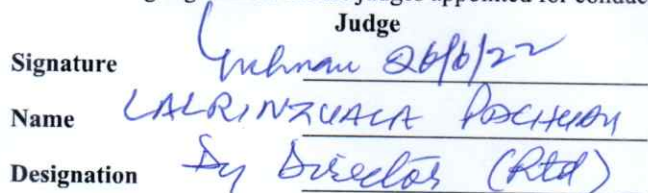 judges appointed for conduc
Judge
Signature 26/6/22
Name LALRINZUALA PACHUAU
Designation Dy Director (Rtd)